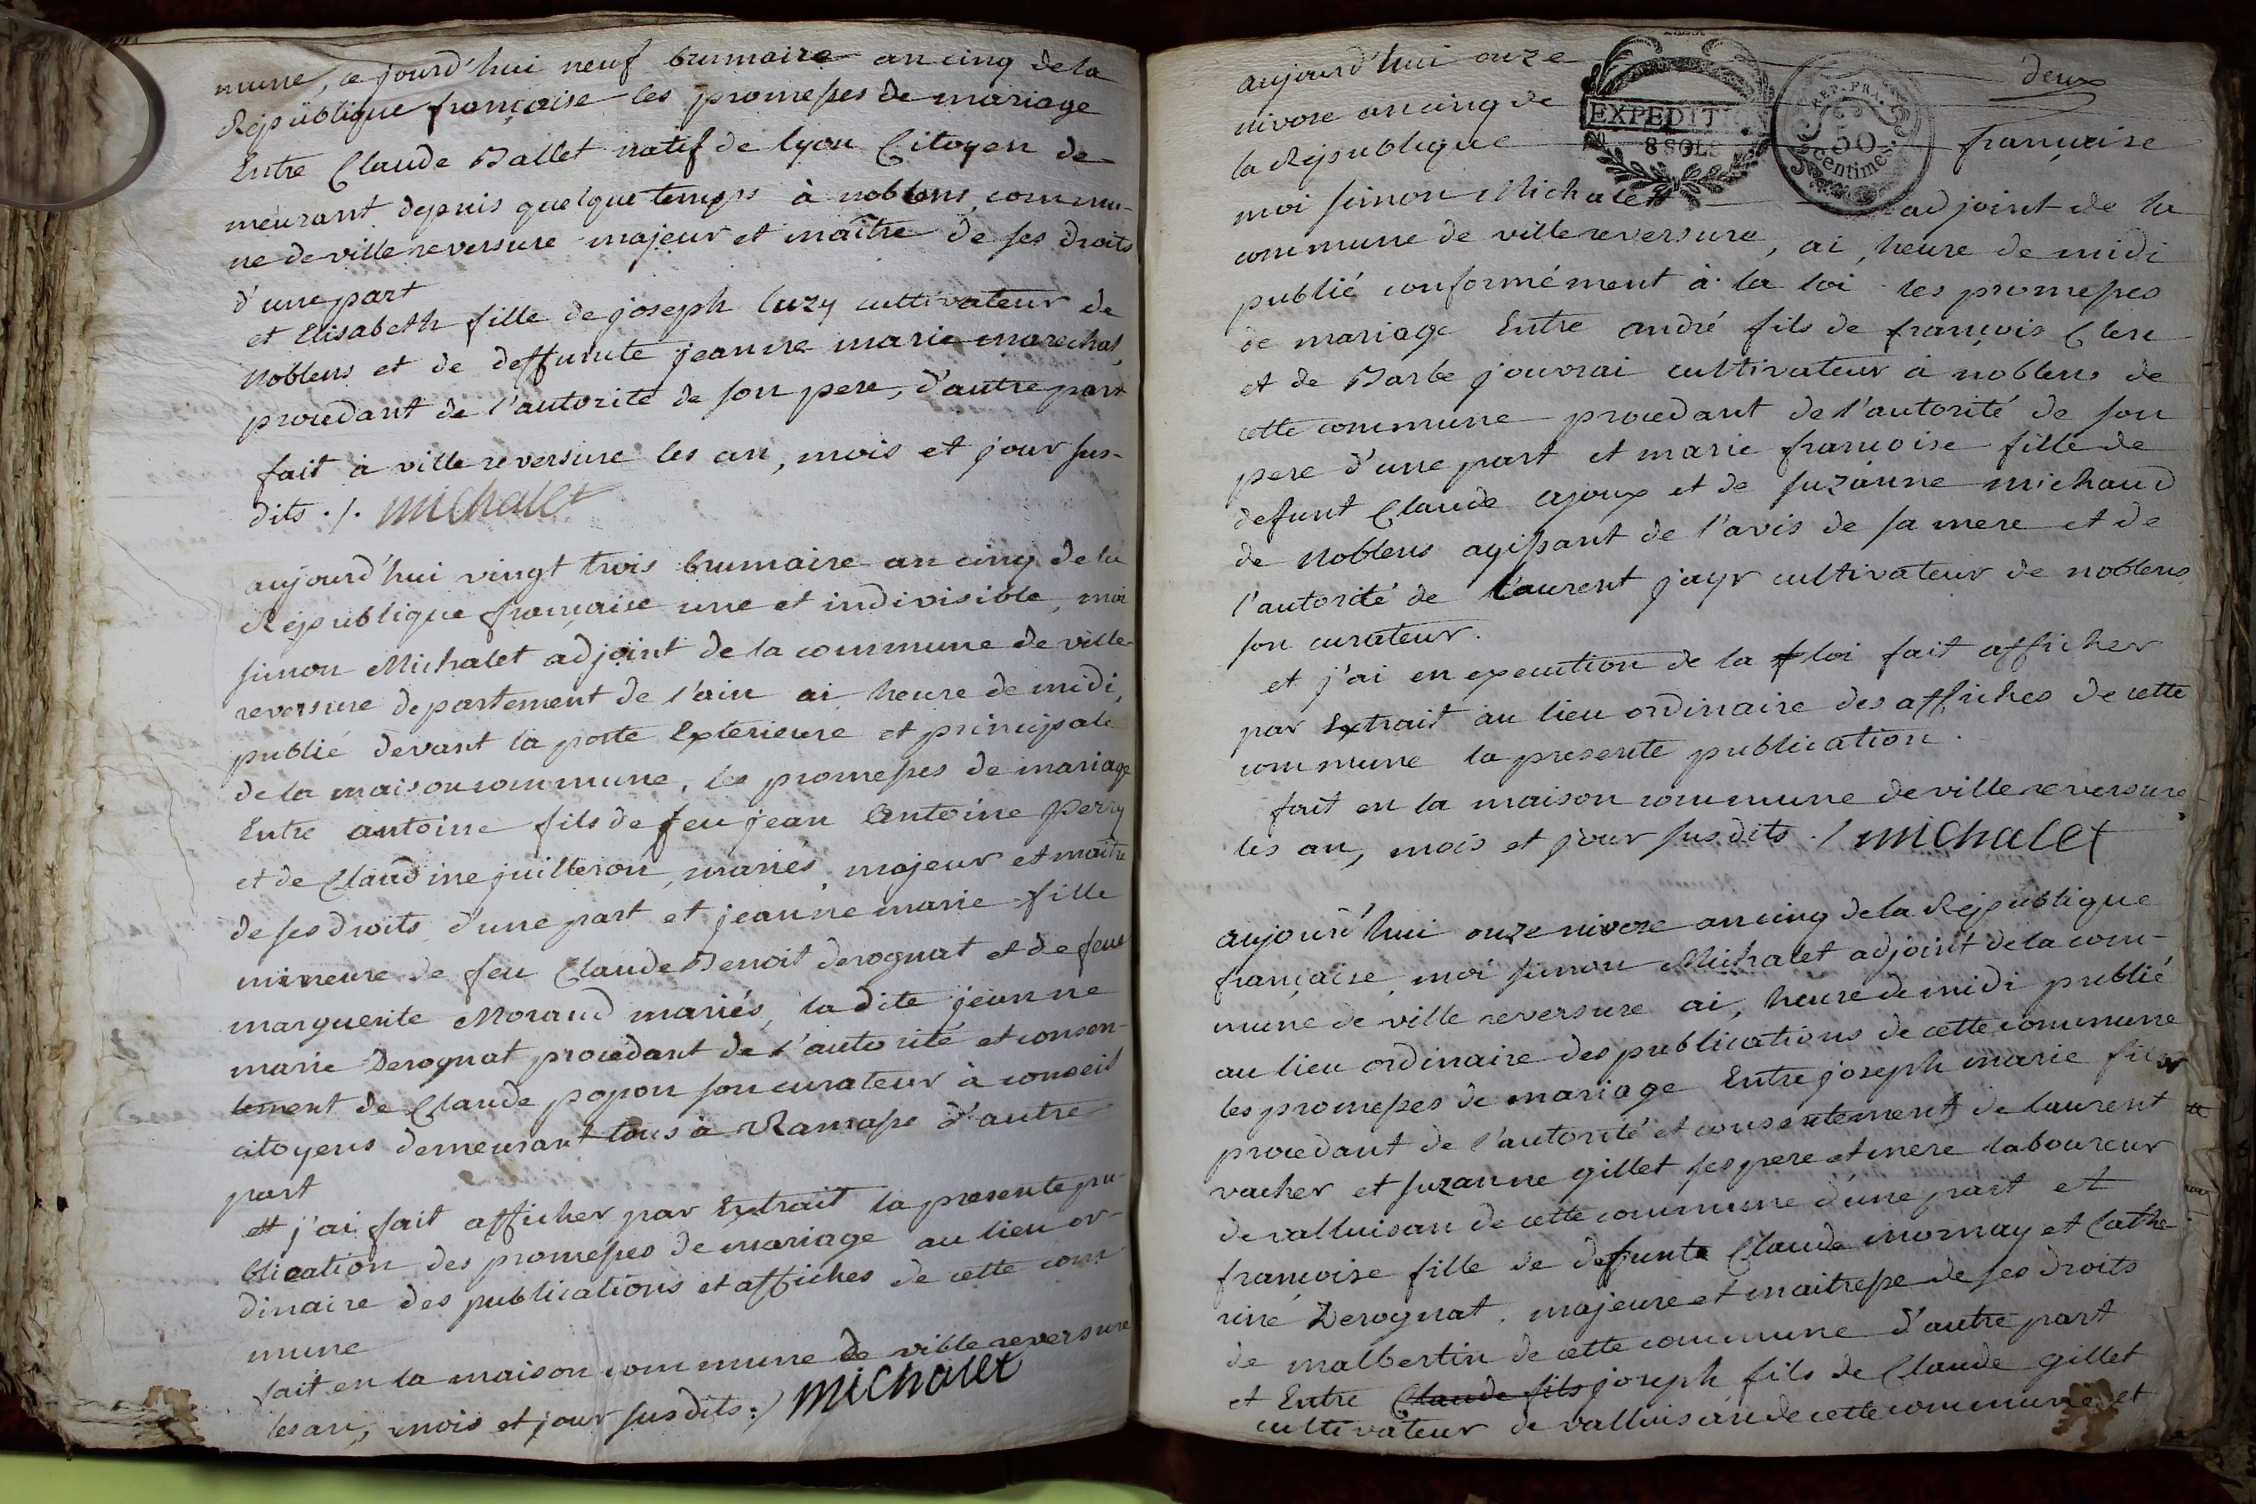 mune, ce jourd'hui neuf brumaire an cinq de la
République françoise les promesses de mariage
Entre Claude Ballet natif de lyon Citoyen de-
meurant depuis quelque temps à noblens, commu-
ne de ville reversure majeur et maître de ses droits
d'une part
et Elisabeth fille de joseph luzy cultivateur de
Noblens et de deffunte jeanne marie marechal,
procedant de l'autorité de son pere, d'autre part
fait à ville reversure les an, mois et jour sus-
dits ./. Michalet
aujourd'hui vingt trois brumaire an cinq de la
République françoise une et indivisible, moi
simon Michalet adjoint de la commune de ville-
reversure departement de l'ain ai heure de midi,
publié devant la porte Exterieure et principale
de la maison commune, les promesses de mariage
Entre antoine fils de feu jean Antoine perry
et de Claudine juilleron, mariés, majeur et maitre
de ses droits d'une part et jeanne marie fille
mineure de feu Claude Benoit derognat et de feue
marguerite Moraud mariés, la dite jeanne
marie Derognat procedant de l'autorité et consen-
tement de Claude popon son curateur à conseil
citoyens demeurant tous à Ramasse d'autre
part
et j'ai fait afficher par Extrait la presente pu-
blication des promesses de mariage au lieu or-
dinaire des publications et affiches de cette com-
mune
fait en la maison commune de ville reversure
les an, mois et jour susdits ./ Michalet
aujourd'hui onze deux
nivose an cinq de
la République française
EXPEDITION
8 SOLS
REP. FRA.
50
centimes
moi simon Michalet adjoint de la
commune de ville reversure, ai, heure de midi
publié conformément à la loi les promesses
de mariage Entre andré fils de françois Clerc
et de Barbe jouvrai cultivateur à noblens de
cette commune procedant de l'autorité de son
pere d'une part et marie francoise fille de
defunt Claude ajoux et de suzanne michaud
de Noblens agissant de l'avis de sa mere et de
l'autorité de laurent jayr cultivateur de noblens
son curateur.
et j'ai en execution de la loi fait afficher
par Extrait au lieu ordinaire des affiches de cette
commune la presente publication.
fait en la maison commune de ville reversure
les an, mois et jour susdits ./ Michalet
aujourd'hui onze nivose an cinq de la République
française, moi simon Michalet adjoint de la com-
mune de ville reversure ai, heure de midi publié
au lieu ordinaire des publications de cette commune
les promesses de mariage Entre joseph marie
procedant de l'autorité et consentement de laurent
vacher et suzanne gillet ses pere et mere laboureur
de valluisan de cette commune d'une part et
francoise fille de defunte Claude mornay et Cathe-
rine Derognat, majeure et maitresse de ses droits
de malbertin de cette commune d'autre part
et Entre Claude fils joseph fils de Claude gillet
cultivateur de valluisan de cette commune et